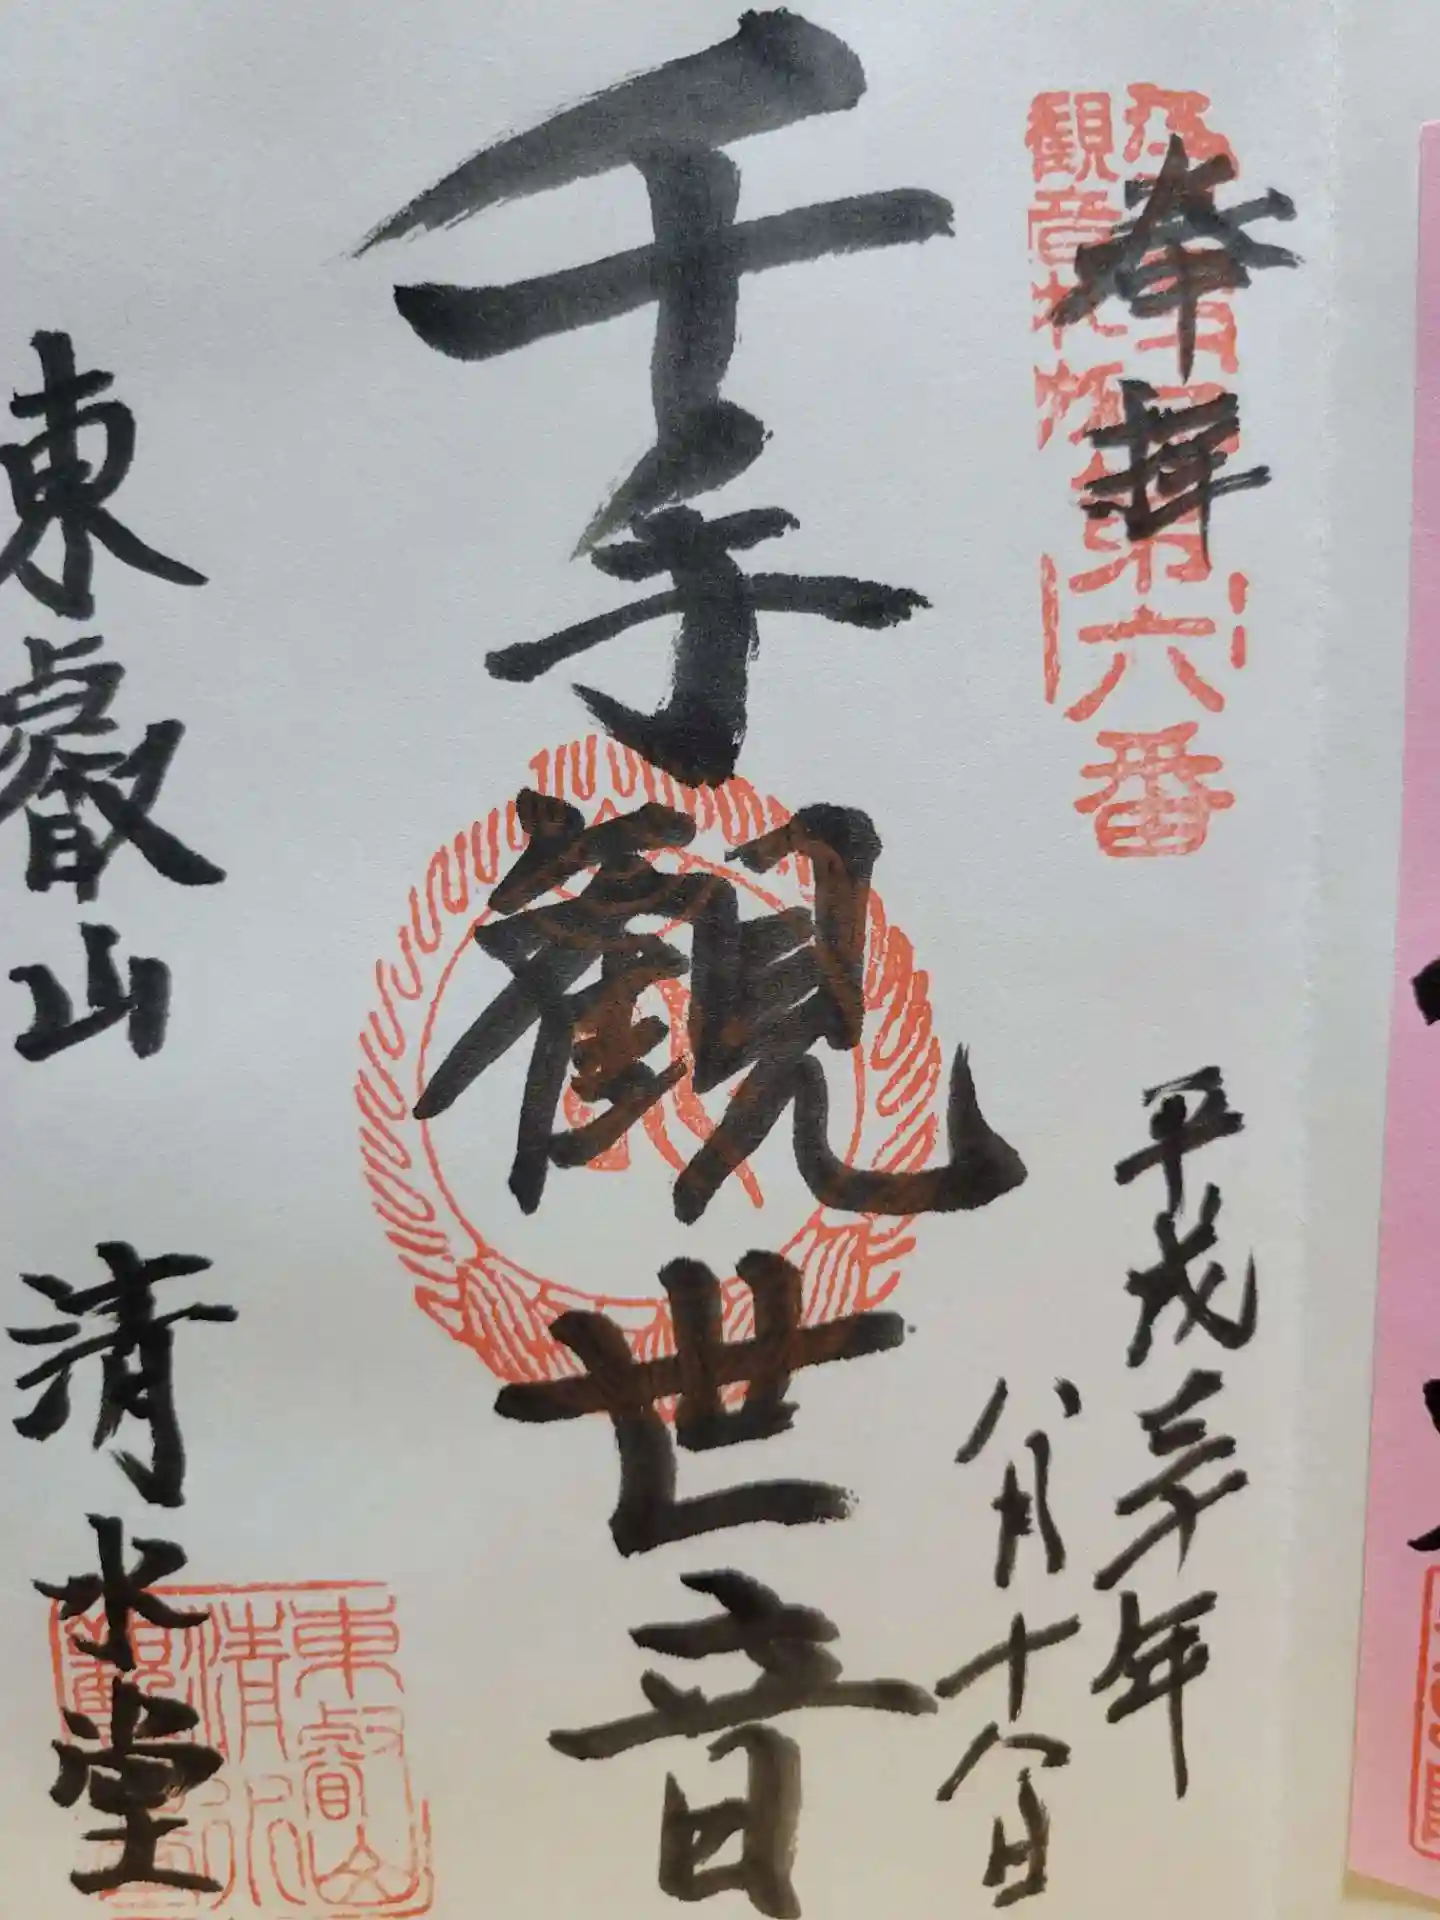 奉拝
観音札所
第六番
平成三十年
八月十日
千手觀世音
東叡山 清水堂
東叡山
清水